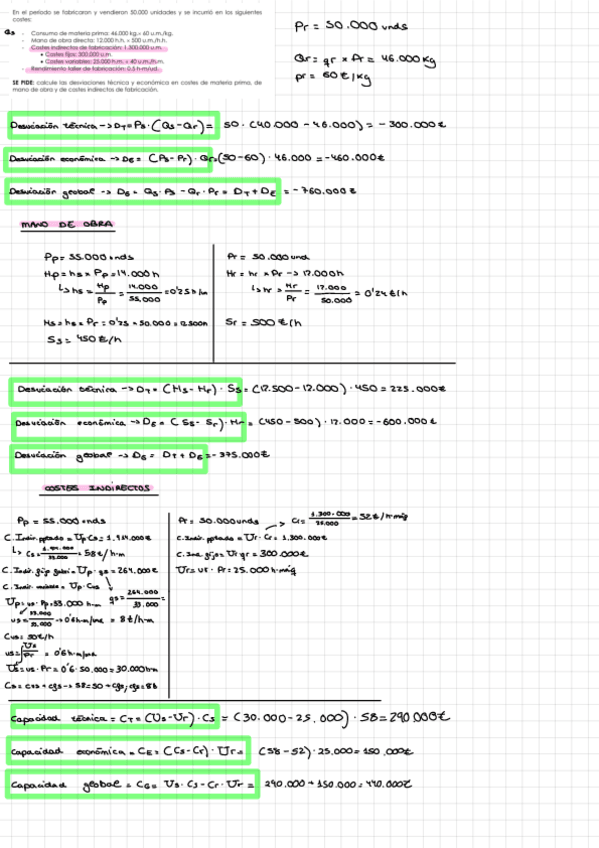 En el periodo se fabricaron y vendieron 50.000 unidades y se incurrió en los siguientes
costes:
Qs
- Consumo de materia prima: 46.000 kg.= 60 u.m./kg.
- Mano de obra directa: 12.000 h.h. = 500 u.m./h.h.
- Costes indirectos de fabricación: 1.300.000 u.m.
• Costes fijos: 300.000 u.m.
• Costes variables: 25.000 h.m. = 40 u.m./h.m.
- Rendimiento taller de fabricación: 0,5 h-m/ud.
SE PIDE: calcule las desviaciones técnica y económica en costes de materia prima, de
mano de obra y de costes indirectos de fabricación.
Pr = 50.000 unds
Qr = qr × Pr = 46.000 Kg
pr = 60 €/Kg
Desviación técnica → DT = Ps · (Qs - Qr) = 50 · (40.000 - 46.000) = - 300.000 €
Desviación económica → DE = (Ps - Pr) · Qr = (50 - 60) · 46.000 = -460.000€
Desviación global → DG = Qs · Ps - Qr · Pr = DT + DE = - 760.000 €
MANO DE OBRA
Pp = 55.000 unds
Hp = hs × Pp = 14.000 h
↳ hs = Hp/Pp = 14.000/55.000 = 0'25 h/un
Hs = hs × Pr = 0'25 · 50.000 = 12.500h
Ss = 450 €/h
Pr = 50.000 und
Hr = hr × Pr → 12.000h
↳ hr = Hr/Pr = 12.000/50.000 = 0'24 €/h
Sr = 500 €/h
Desviación técnica → DT = (Hs - Hr) · Ss = (12.500 - 12.000) · 450 = 225.000€
Desviación económica → DE = (Ss - Sr) · Hr = (450 - 500) · 12.000 = -600.000 €
Desviación global → DG = DT + DE = - 375.000€
COSTES INDIRECTOS
Pp = 55.000 unds
C. Indir. pptado = Up · Cs = 1.914.000 €
↳ Cs = 1.914.000/33.000 = 58 €/h-m
C. Indir. fijo = Up · gs = 264.000 €
C. Indir. variable = Up · Cvs
Up = us · Pp = 33.000 h-m
gs = 264.000/33.000 = 8 €/h-m
us = 33.000/55.000 → 0'6 h-m/und
Cvs = 50 €/h
us = Us/Pr = 0'6 h-m/und
Us = us · Pr = 0'6 · 50.000 = 30.000 h-m
Cs = cvs + cgs → 58 = 50 + cgs; cgs = 8
Pr = 50.000 unds → Cr = 1.300.000/25.000 = 52 €/h-máq
C. Indir. pptado = Ur · Cr = 1.300.000 €
C. Ind. fijo = Ur gr = 300.000€
Ur = ur · Pr = 25.000 h-máq
Capacidad técnica = CT = (Us - Ur) · Cs = (30.000 - 25.000) · 58 = 290.000€
Capacidad económica = CE = (Cs - Cr) · Ur = (58 - 52) · 25.000 = 150.000€
Capacidad global = CG = Us · Cs - Cr · Ur = 290.000 + 150.000 = 440.000€